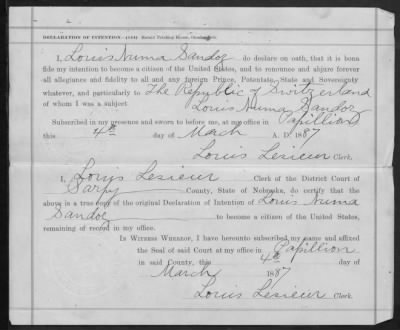 DECLARATION OF INTENTION.
I, Louis Numa Sandoz do declare on oath, that it is bona
fide my intention to become a citizen of the United States, and to renounce and abjure forever
all allegiance and fidelity to all and any foreign Prince, Potentate, State and Sovereignty
whatever, and particularly to The Republic of Switzerland
of whom I was a subject Louis Numa Sandoz
Subscribed in my presence and sworn to before me, at my office in Papillion
this 4th day of March A. D. 1887
Louis Lesieur Clerk.
I, Louis Lesieur Clerk of the District Court of
Sarpy County, State of Nebraska, do certify that the
above is a true copy of the original Declaration of Intention of Louis Numa
Sandoz to become a citizen of the United States,
remaining of record in my office.
In Witness Whereof, I have hereunto subscribed my name and affixed
the Seal of said Court at my office in Papillion
in said County, this 4th day of
March 1887
Louis Lesieur Clerk.